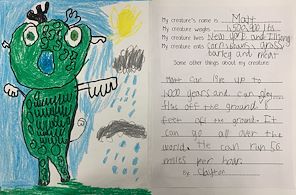 My creature's name is Matt
My creature weighs 1,500,000 lbs.
My creature lives New York and Illinois
My creature eats corn, grass
barley and meat
Some other things about my creature:
Matt can live up to
1,000 years and can
flies off the ground. 8
feet off the ground. It
can go all over the
world. He can run 50
miles per hour.
By: Clayton